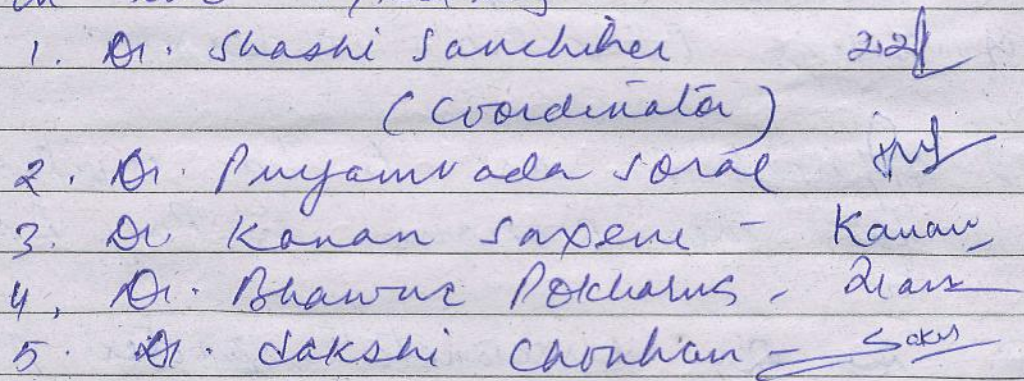 1. Dr. Shashi Sanchiher
(Coordinator)
2. Dr. Priyamvada Soral
3. Dr Kanan Saxena - Kanan
4. Dr. Bhawna Pokharna -
5. Dr. Sakshi Chouhan - Saksh